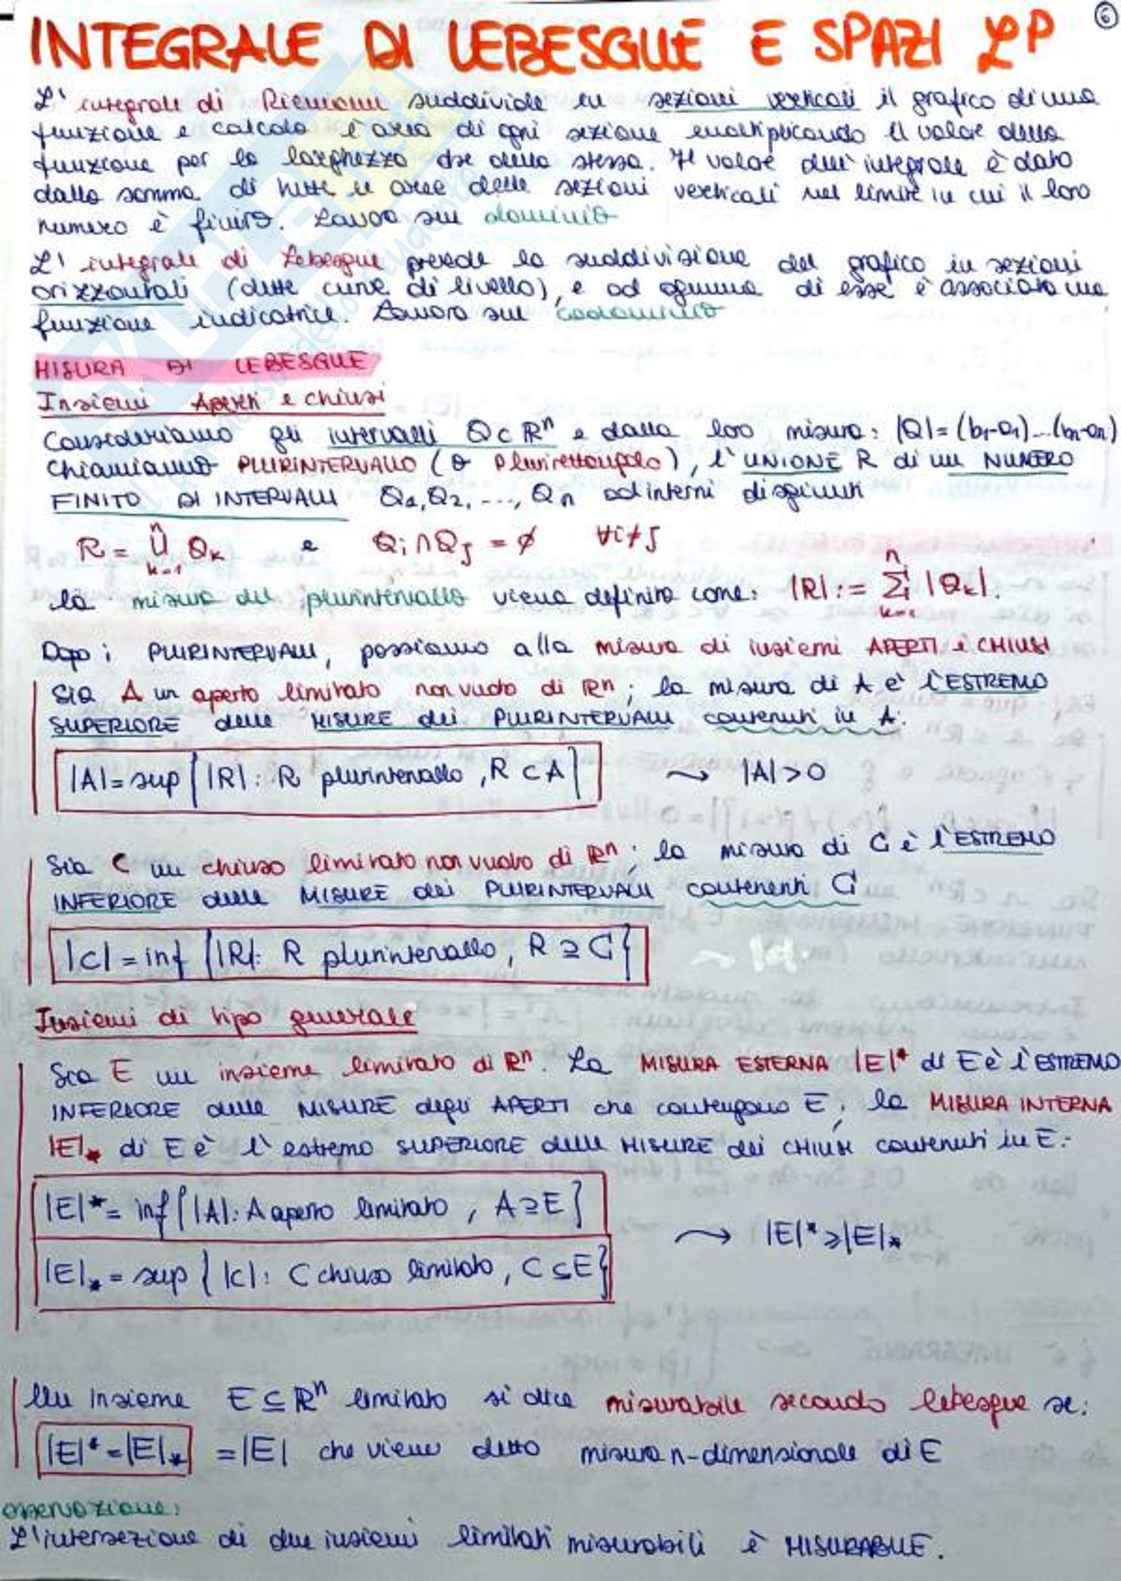 6
INTEGRALE DI LEBESGUE E SPAZI LP
L'integrale di Riemann suddivide in sezioni verticali il grafico di una
funzione e calcola l'area di ogni sezione moltiplicando il valore della
funzione per la larghezza della stessa. Il valore dell'integrale è dato
dalla somma di tutte le aree delle sezioni verticali nel limite in cui il loro
numero è finito. Lavoro sul dominio
L'integrale di Lebesgue prevede la suddivisione del grafico in sezioni
orizzontali (dette curve di livello), e ad ognuna di esse è associata una
funzione indicatrice. Lavoro sul codominio
MISURA DI LEBESGUE
Insiemi Aperti e chiusi
Consideriamo gli intervalli Q⊂ℝⁿ e data la loro misura: |Q|=(b₁-a₁)...(bₙ-aₙ)
Chiamiamo PLURINTERVALLO (o plurirettangolo), l'UNIONE R di un NUMERO
FINITO DI INTERVALLI Q₁,Q₂,...,Qn ad interni disgiunti
R = n∪k=1 Qk e Qi∩Qj = ∅ ∀i≠j
la misura del plurintervallo viene definita come: |R| := nΣk=1 |Qk|.
Dopo i PLURINTERVALLI, passiamo alla misura di insiemi APERTI e CHIUSI
Sia A un aperto limitato non vuoto di ℝⁿ; la misura di A è l'ESTREMO
SUPERIORE delle MISURE dei PLURINTERVALLI contenuti in A.
|A|=sup{|R|: R plurintervallo, R⊂A} ⇝ |A|>0
Sia C un chiuso limitato non vuoto di ℝⁿ; la misura di C è l'ESTREMO
INFERIORE delle MISURE dei PLURINTERVALLI contenenti C
|C|=inf{|R|: R plurintervallo, R⊇C}
Insiemi di tipo generale
Sia E un insieme limitato di ℝⁿ. La MISURA ESTERNA |E|* di E è l'ESTREMO
INFERIORE delle MISURE degli APERTI che contengono E, la MISURA INTERNA
|E|⁎ di E è l'estremo SUPERIORE delle MISURE dei CHIUSI contenuti in E:
|E|*=inf{|A|: A aperto limitato, A⊇E}
⇝ |E|*≥|E|⁎
|E|⁎=sup{|C|: C chiuso limitato, C⊆E}
Un insieme E⊆ℝⁿ limitato si dice misurabile secondo Lebesgue se:
|E|*=|E|⁎ =|E| che viene detto misura n-dimensionale di E
osservazione:
L'intersezione di due insiemi limitati misurabili è MISURABILE.